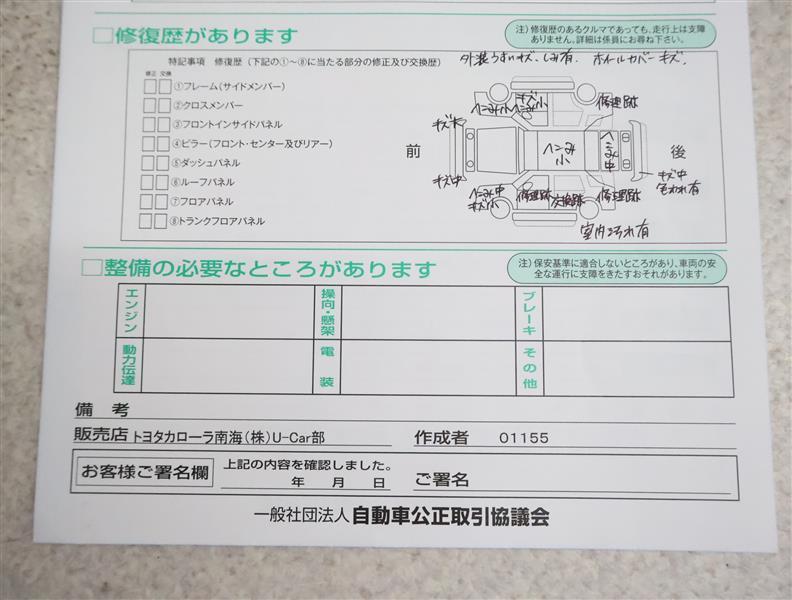 □修復歴があります
注）修復歴のあるクルマであっても、走行上は支障
ありません。詳細は係員にお尋ね下さい。
特記事項 修復歴（下記の①～⑧に当たる部分の修正及び交換歴）
外装うすいキズ、しみ有、ホイールカバーキズ、
修正 交換
①フレーム（サイドメンバー）
②クロスメンバー
③フロントインサイドパネル
④ピラー（フロント・センター及びリアー）
⑤ダッシュパネル
⑥ルーフパネル
⑦フロアパネル
⑧トランクフロアパネル
前
後
ヘこみ小
キズ小
ヘこみ小
修理跡
キズ大
ヘこみ小
ヘこみ中
キズ中
キズ中
色われ有
ヘこみ中
キズ小
修理跡
交換跡
修理跡
室内よごれ有
□整備の必要なところがあります
注）保安基準に適合しないところがあり、車両の安
全な運行に支障をきたすおそれがあります。
エンジン
操向・懸架
ブレーキ
動力伝達
電装
その他
備考
販売店 トヨタカローラ南海（株）U-Car部
作成者 01155
お客様ご署名欄
上記の内容を確認しました。
年 月 日
ご署名
一般社団法人 自動車公正取引協議会